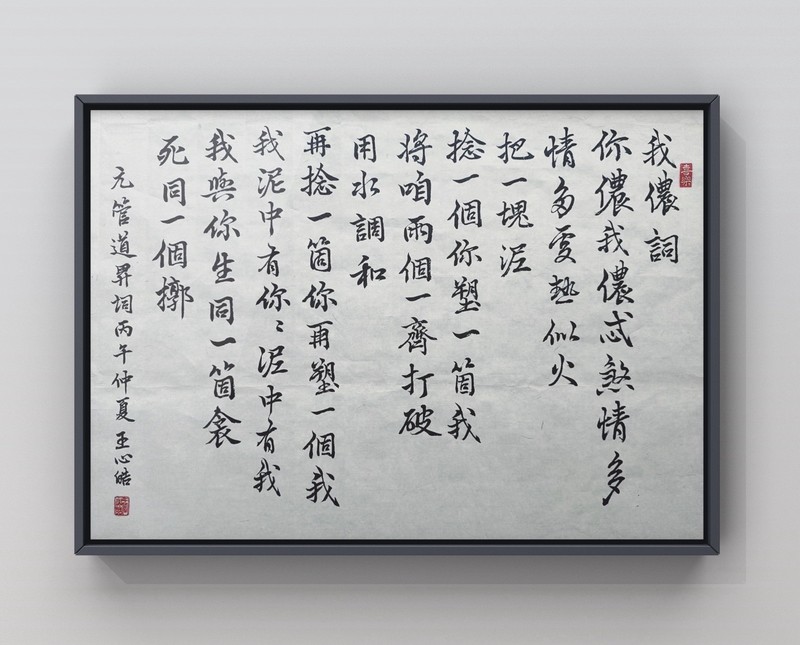 我儂詞
你儂我儂忒煞情多
情多處熱似火
把一塊泥
捻一個你塑一箇我
将咱兩個一齊打破
用水調和
再捻一箇你再塑一個我
我泥中有你〻泥中有我
我與你生同一箇衾
死同一個槨
元管道昇詞丙午仲夏王心皓